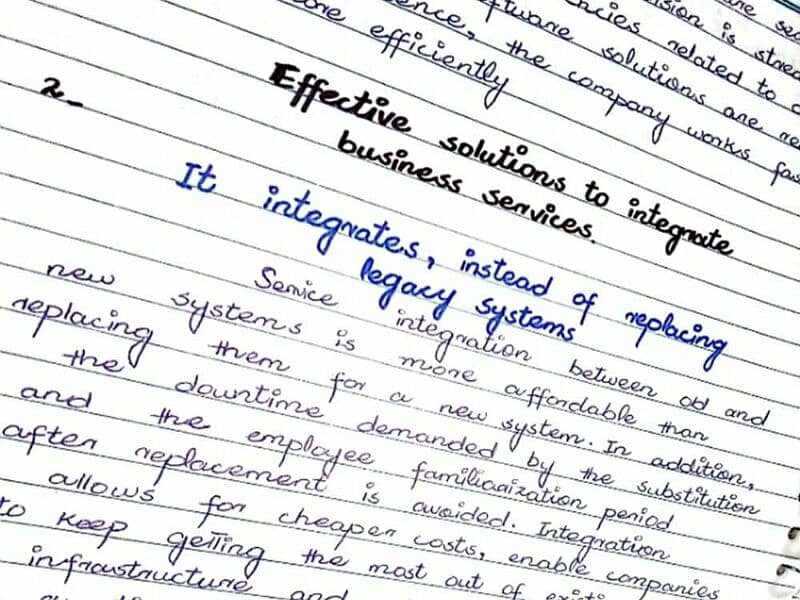 ision is stored
ncies related to
ftware solutions are
ence, the company works fas
more efficiently
2-
Effective solutions to integrate
business services.
It integrates, instead of replacing
legacy systems
Service integration between old and
new systems is more affordable than
replacing them for a new system. In addition,
the downtime demanded by the substitution
and the employee familiarization period
after replacement is avoided. Integration
allows for cheaper costs, enable companies
to keep getting the most out of existi
infraustructure and